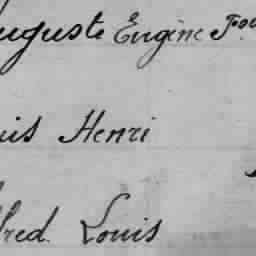 uguste Eugène
uis Henri
fred Louis